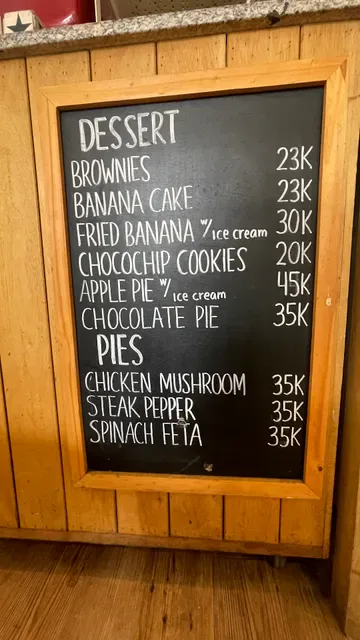 DESSERT
BROWNIES 23K
BANANA CAKE 23K
FRIED BANANA w/ ice cream 30K
CHOCOCHIP COOKIES 20K
APPLE PIE w/ ice cream 45K
CHOCOLATE PIE 35K
PIES
CHICKEN MUSHROOM 35K
STEAK PEPPER 35K
SPINACH FETA 35K